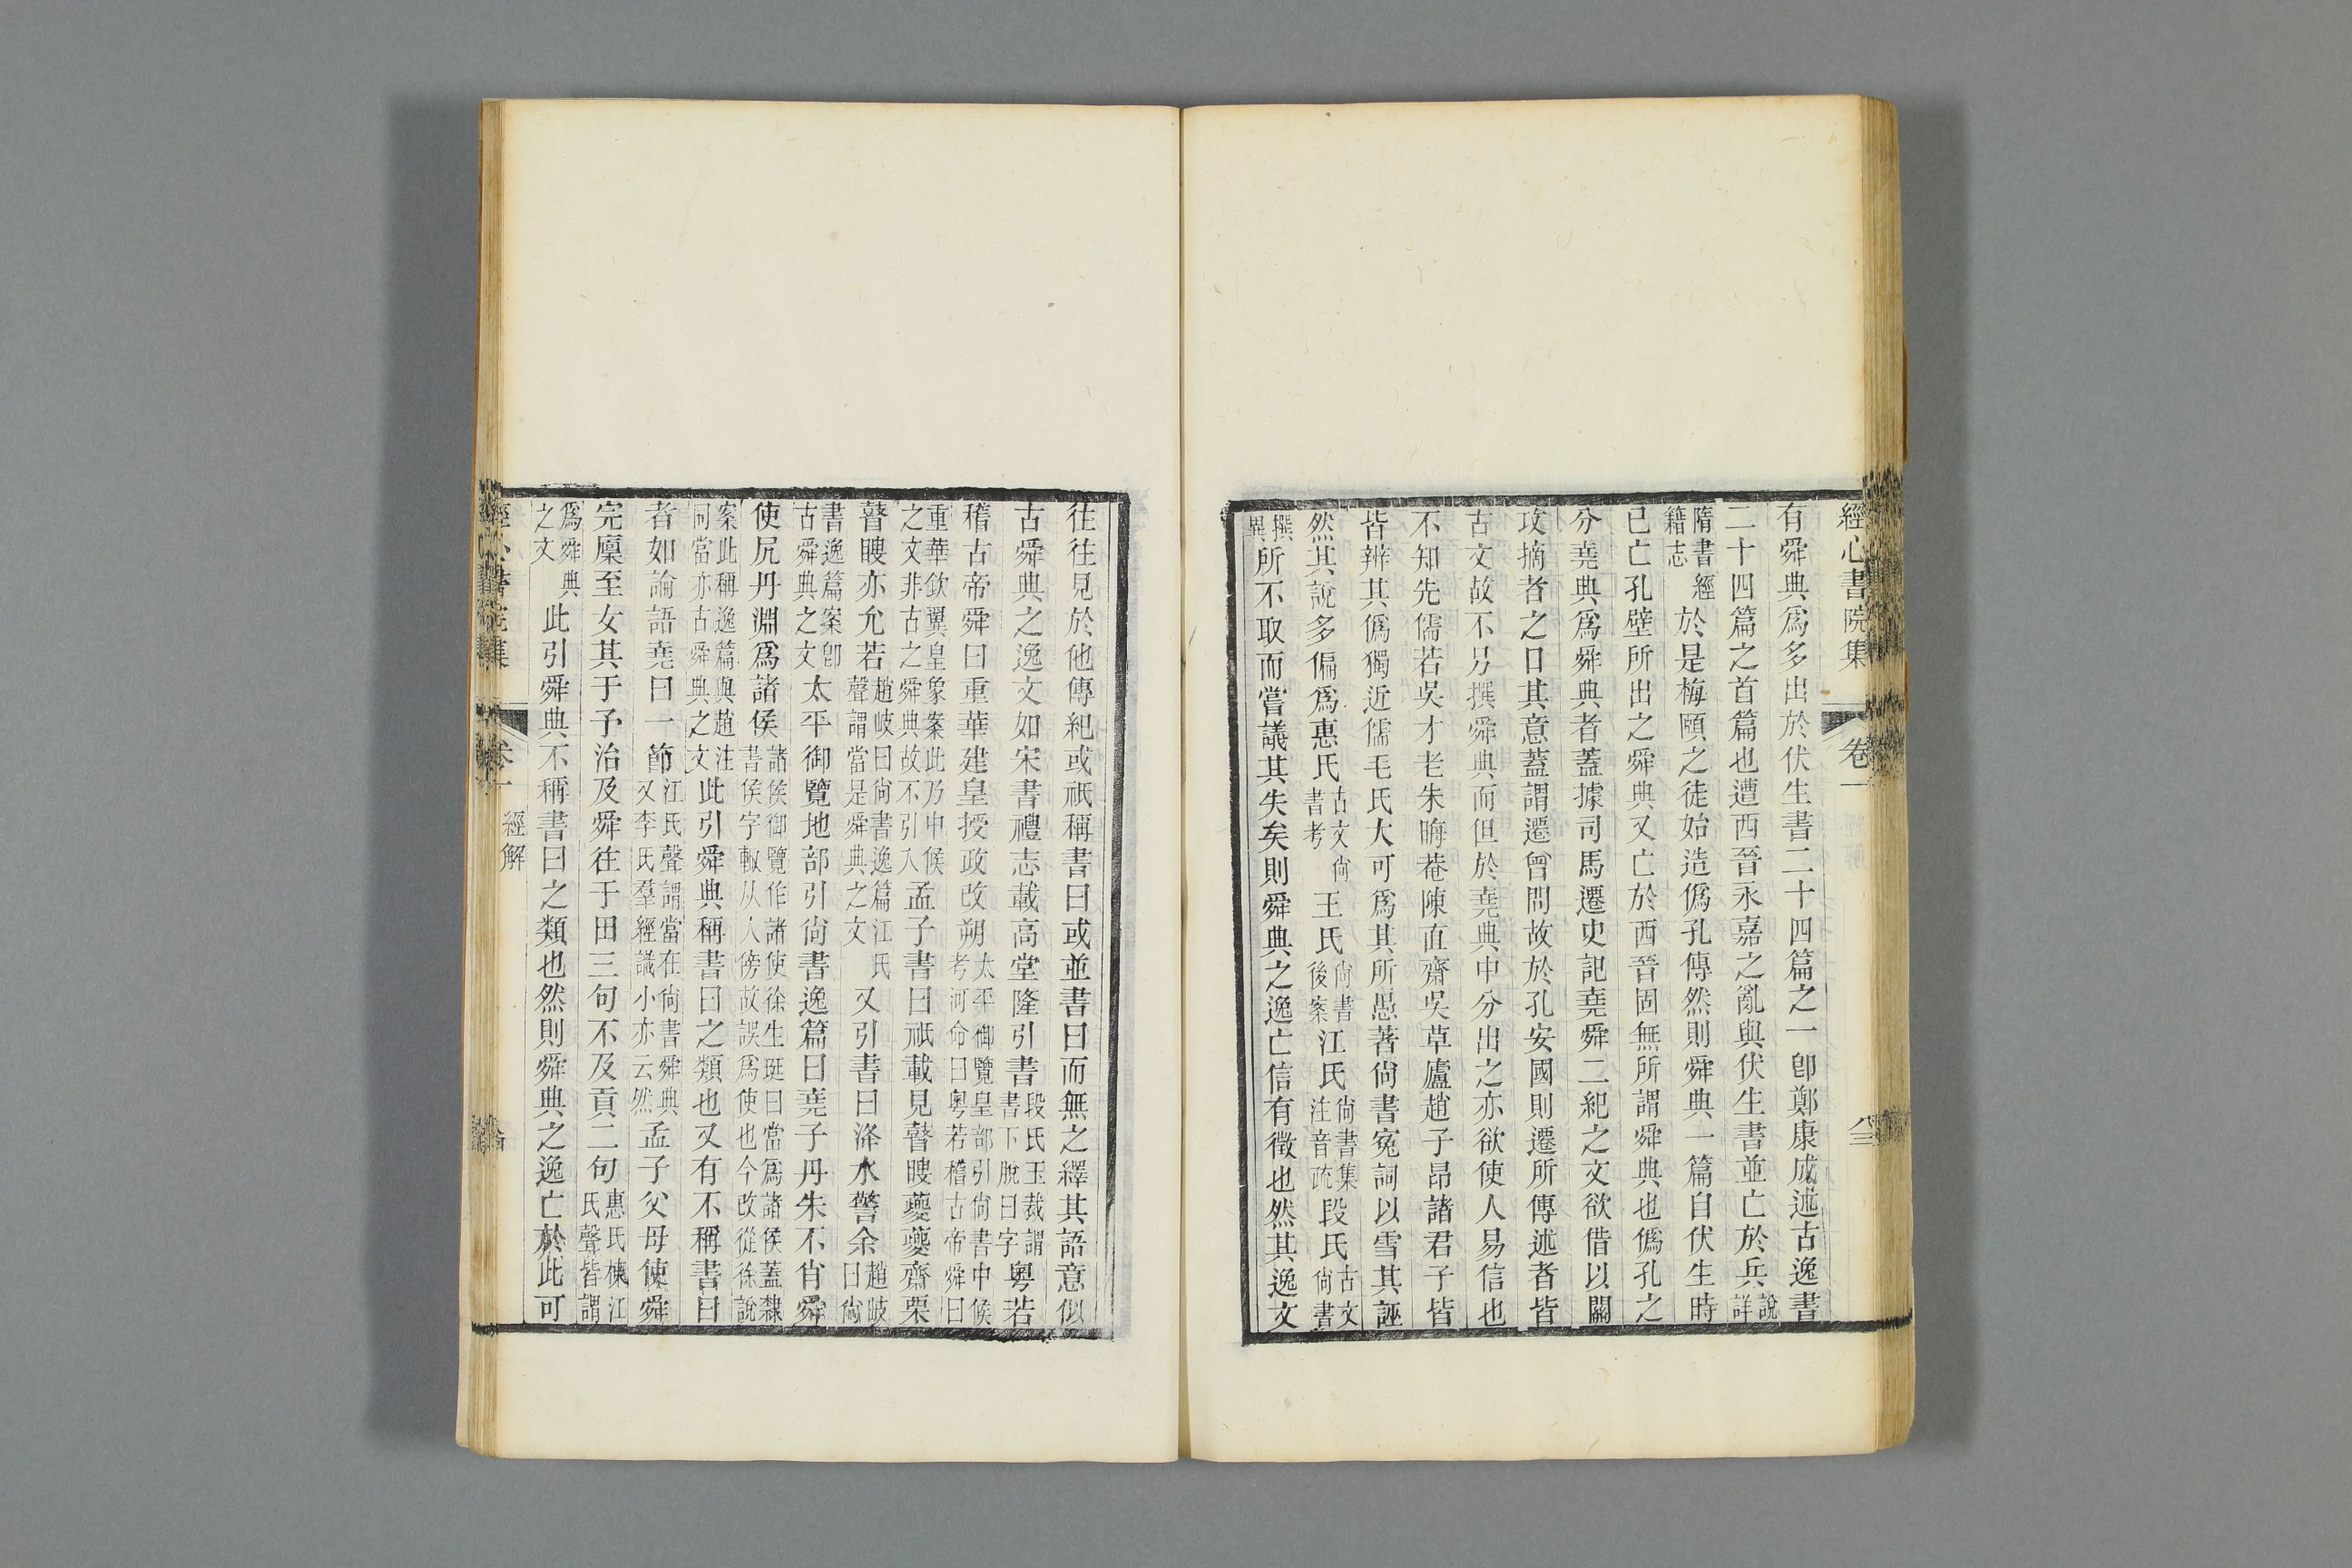 經心書院集 卷一 八三
有舜典爲多出於伏生書二十四篇之一卽鄭康成述古逸書
二十四篇之首篇也遭西晉永嘉之亂與伏生書並亡於兵說詳
隋書經籍志於是梅頤之徒始造僞孔傳然則舜典一篇自伏生時
已亡孔壁所出之舜典又亡於西晉固無所謂舜典也僞孔之
分堯典爲舜典者蓋據司馬遷史記堯舜二紀之文欲借以關
攻摘者之口其意蓋謂遷曾問故於孔安國則遷所傳述者皆
古文故不另撰舜典而但於堯典中分出之亦欲使人易信也
不知先儒若吳才老朱晦菴陳直齋吳草廬趙子昂諸君子皆
皆辨其僞獨近儒毛氏大可爲其所愚著尙書寃詞以雪其誣
然其說多偏爲惠氏古文尙書考王氏尙書後案江氏尙書集注音疏段氏古文尙書
撰異所不取而嘗議其失矣則舜典之逸亡信有徵也然其逸文
往往見於他傳紀或祇稱書曰或並書曰而無之繹其語意似
古舜典之逸文如宋書禮志載高堂隆引書段氏玉裁謂書下脫曰字粵若
稽古帝舜曰重華建皇授政改朔太平御覽皇部引尙書中候考河命曰粵若稽古帝舜曰
重華欽翼皇象案此乃中候之文非古之舜典故不引入孟子書曰祇載見瞽瞍夔夔齋栗
瞽瞍亦允若趙岐曰尙書逸篇江氏聲謂當是舜典之文又引書曰洚水警余趙岐曰尙
書逸篇案卽古舜典之文太平御覽地部引尙書逸篇曰堯子丹朱不肖舜
使尻丹淵爲諸侯諸侯御覽作諸使徐生珽曰當爲諸侯蓋隸書侯字輙从人傍故誤爲使也今改從徐說
案此稱逸篇與趙注同當亦古舜典之文此引舜典稱書曰之類也又有不稱書曰
者如論語堯曰一節江氏聲謂當在尙書舜典又李氏羣經識小亦云然孟子父母使舜
完廩至女其于予治及舜往于田三句不及貢二句惠氏棟江氏聲皆謂
爲舜典之文此引舜典不稱書曰之類也然則舜典之逸亡於此可
經心書院集 卷一 經解